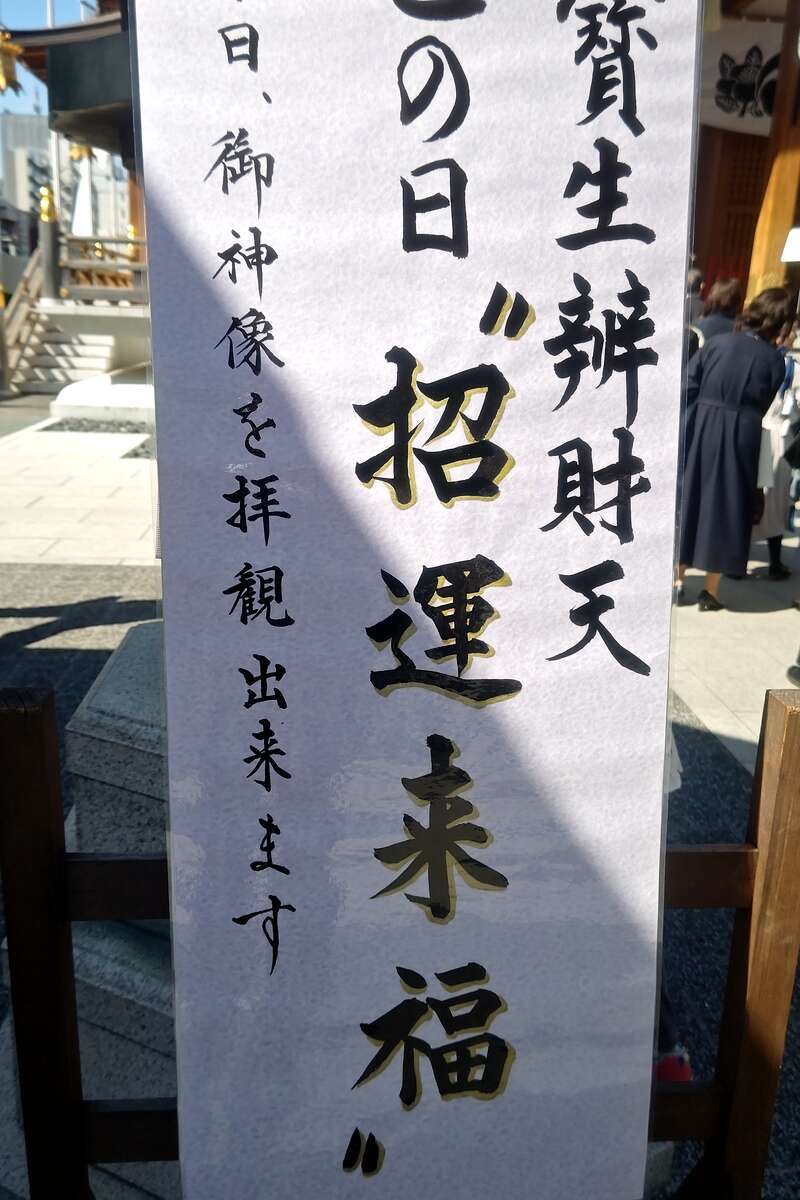 寳生辨財天
の日 〝招運来福〟
日、御神像を拝観出来ます